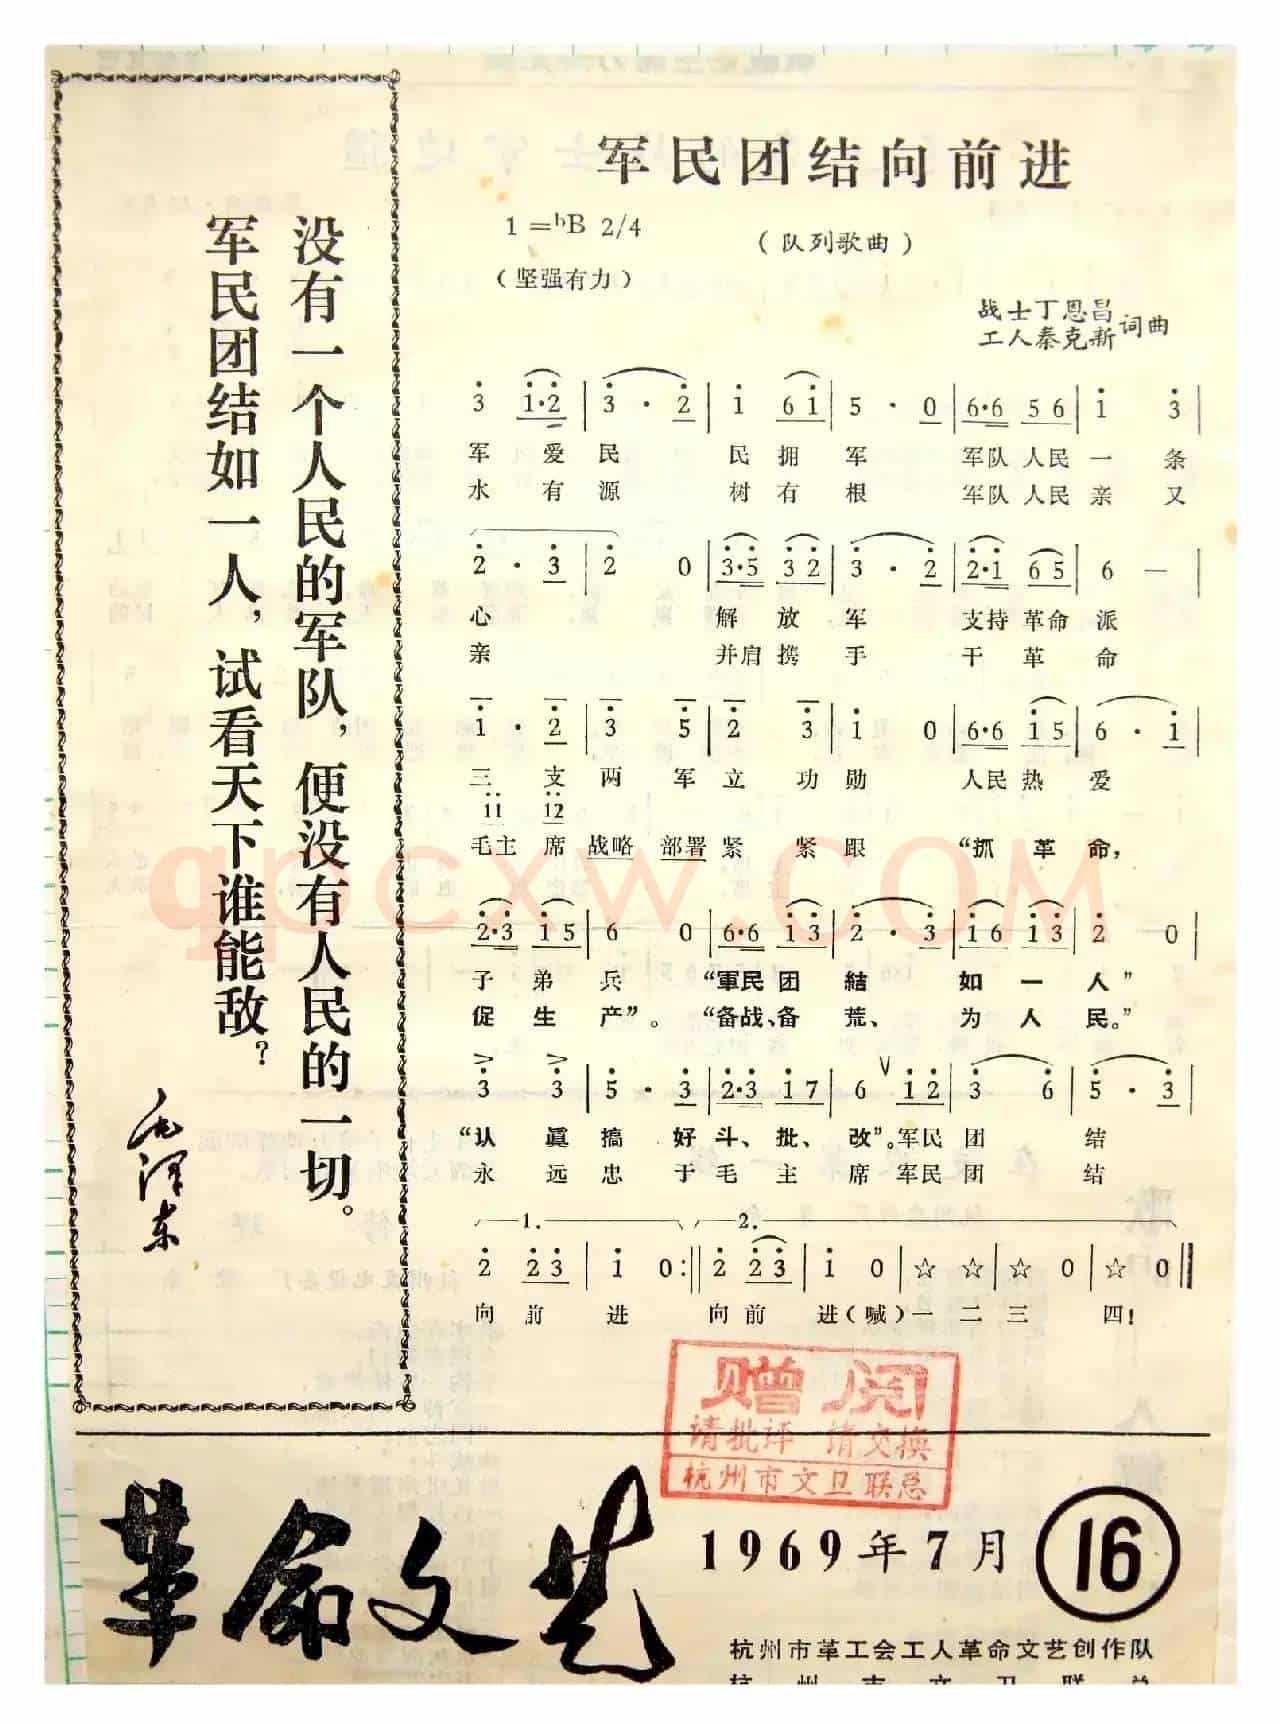 没有一个人民的军队，便没有人民的一切。
军民团结如一人，试看天下谁能敌？
毛泽东
军民团结向前进
1=ᵇB 2/4
（队列歌曲）
（坚强有力）
战士丁恩昌
工人秦克新
词曲
3 1·2 | 3 · 2 | 1 6 1 | 5 · 0 | 6·6 5 6 | 1 3 |
军 爱 民 民 拥 军 军队 人民 一 条
水 有 源 树 有 根 军队 人民 亲 又
2 · 3 | 2 0 | 3·5 3 2 | 3 · 2 | 2·1 6 5 | 6 — |
心 解 放 军 支持 革命 派
亲 并肩 携 手 干 革 命
1 · 2 | 3 5 | 2 3 | 1 0 | 6·6 1 5 | 6 · 1 |
三 支 两 军 立 功 勋 人民 热 爱
11 12
毛主 席 战略 部署 紧 紧 跟 “抓 革 命，
2·3 1 5 | 6 0 | 6·6 1 3 | 2 · 3 | 1 6 1 3 | 2 0 |
子 弟 兵 “軍民 团 結 如 一 人”
促 生 产”。 “备战、备 荒、 为 人 民。”
3 3 | 5 · 3 | 2·3 1 7 | 6 V 1 2 | 3 6 | 5 · 3 |
“认 眞 搞 好 斗、批、 改”。军民 团 结
永 远 忠 于 毛 主 席 军民 团 结
1. 2.
2 2 3 | 1 0 :‖ 2 2 3 | 1 0 | ☆ ☆ | ☆ 0 | ☆ 0 ‖
向 前 进 向 前 进（喊）一 二 三 四！
赠阅
请批评 请交换
杭州市文卫联总
革命文艺
1969年7月
16
杭州市革工会工人革命文艺创作队
杭州市文卫联总
qpcxw.COM